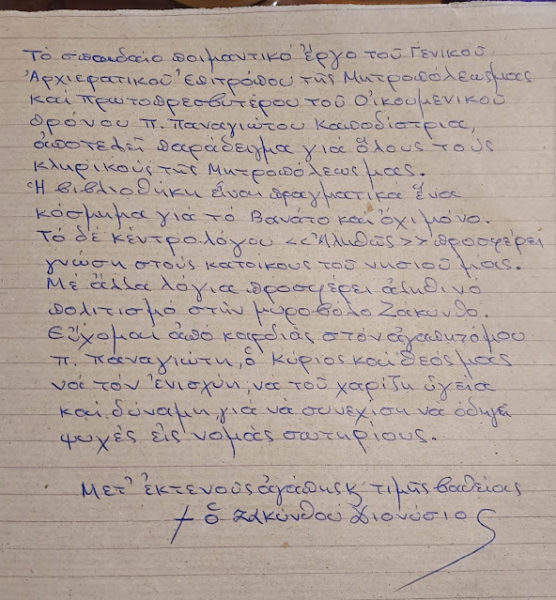 Τό σπουδαῖο ποιμαντικό ἔργο τοῦ Γενικοῦ
Ἀρχιερατικοῦ Ἐπιτρόπου τῆς Μητροπόλεώς μας
καί πρωτοπρεσβυτέρου τοῦ Οἰκουμενικοῦ
θρόνου π. Παναγιώτου Καποδίστρια,
ἀποτελεῖ παράδειγμα γιά ὅλους τούς
κληρικούς τῆς Μητροπόλεώς μας.
Ἡ βιβλιοθήκη εἶναι πραγματικά ἕνα
κόσμημα γιά τό Βανᾶτο καί ὄχι μόνο.
Τό δέ κέντρο λόγου <<Ἀληθῶς>> προσφέρει
γνώση στούς κατοίκους τοῦ νησιοῦ μας.
Μέ ἄλλα λόγια προσφέρει ἀληθινό
πολιτισμό στήν μυροβόλο Ζάκυνθο.
Εὔχομαι ἀπό καρδιᾶς στόν ἀγαπητό μου
π. Παναγιώτη, ὁ Κύριος καί Θεός μας
νά τόν ἐνισχύῃ, νά τοῦ χαρίζῃ ὑγεία
καί δύναμη, γιά νά συνεχίσῃ νά ὁδηγῇ
ψυχές εἰς νομάς σωτηρίους.
Μετ' ἐκτενοῦς ἀγάπης κ τιμῆς βαθείας
† ὁ Ζακύνθου Διονύσιος